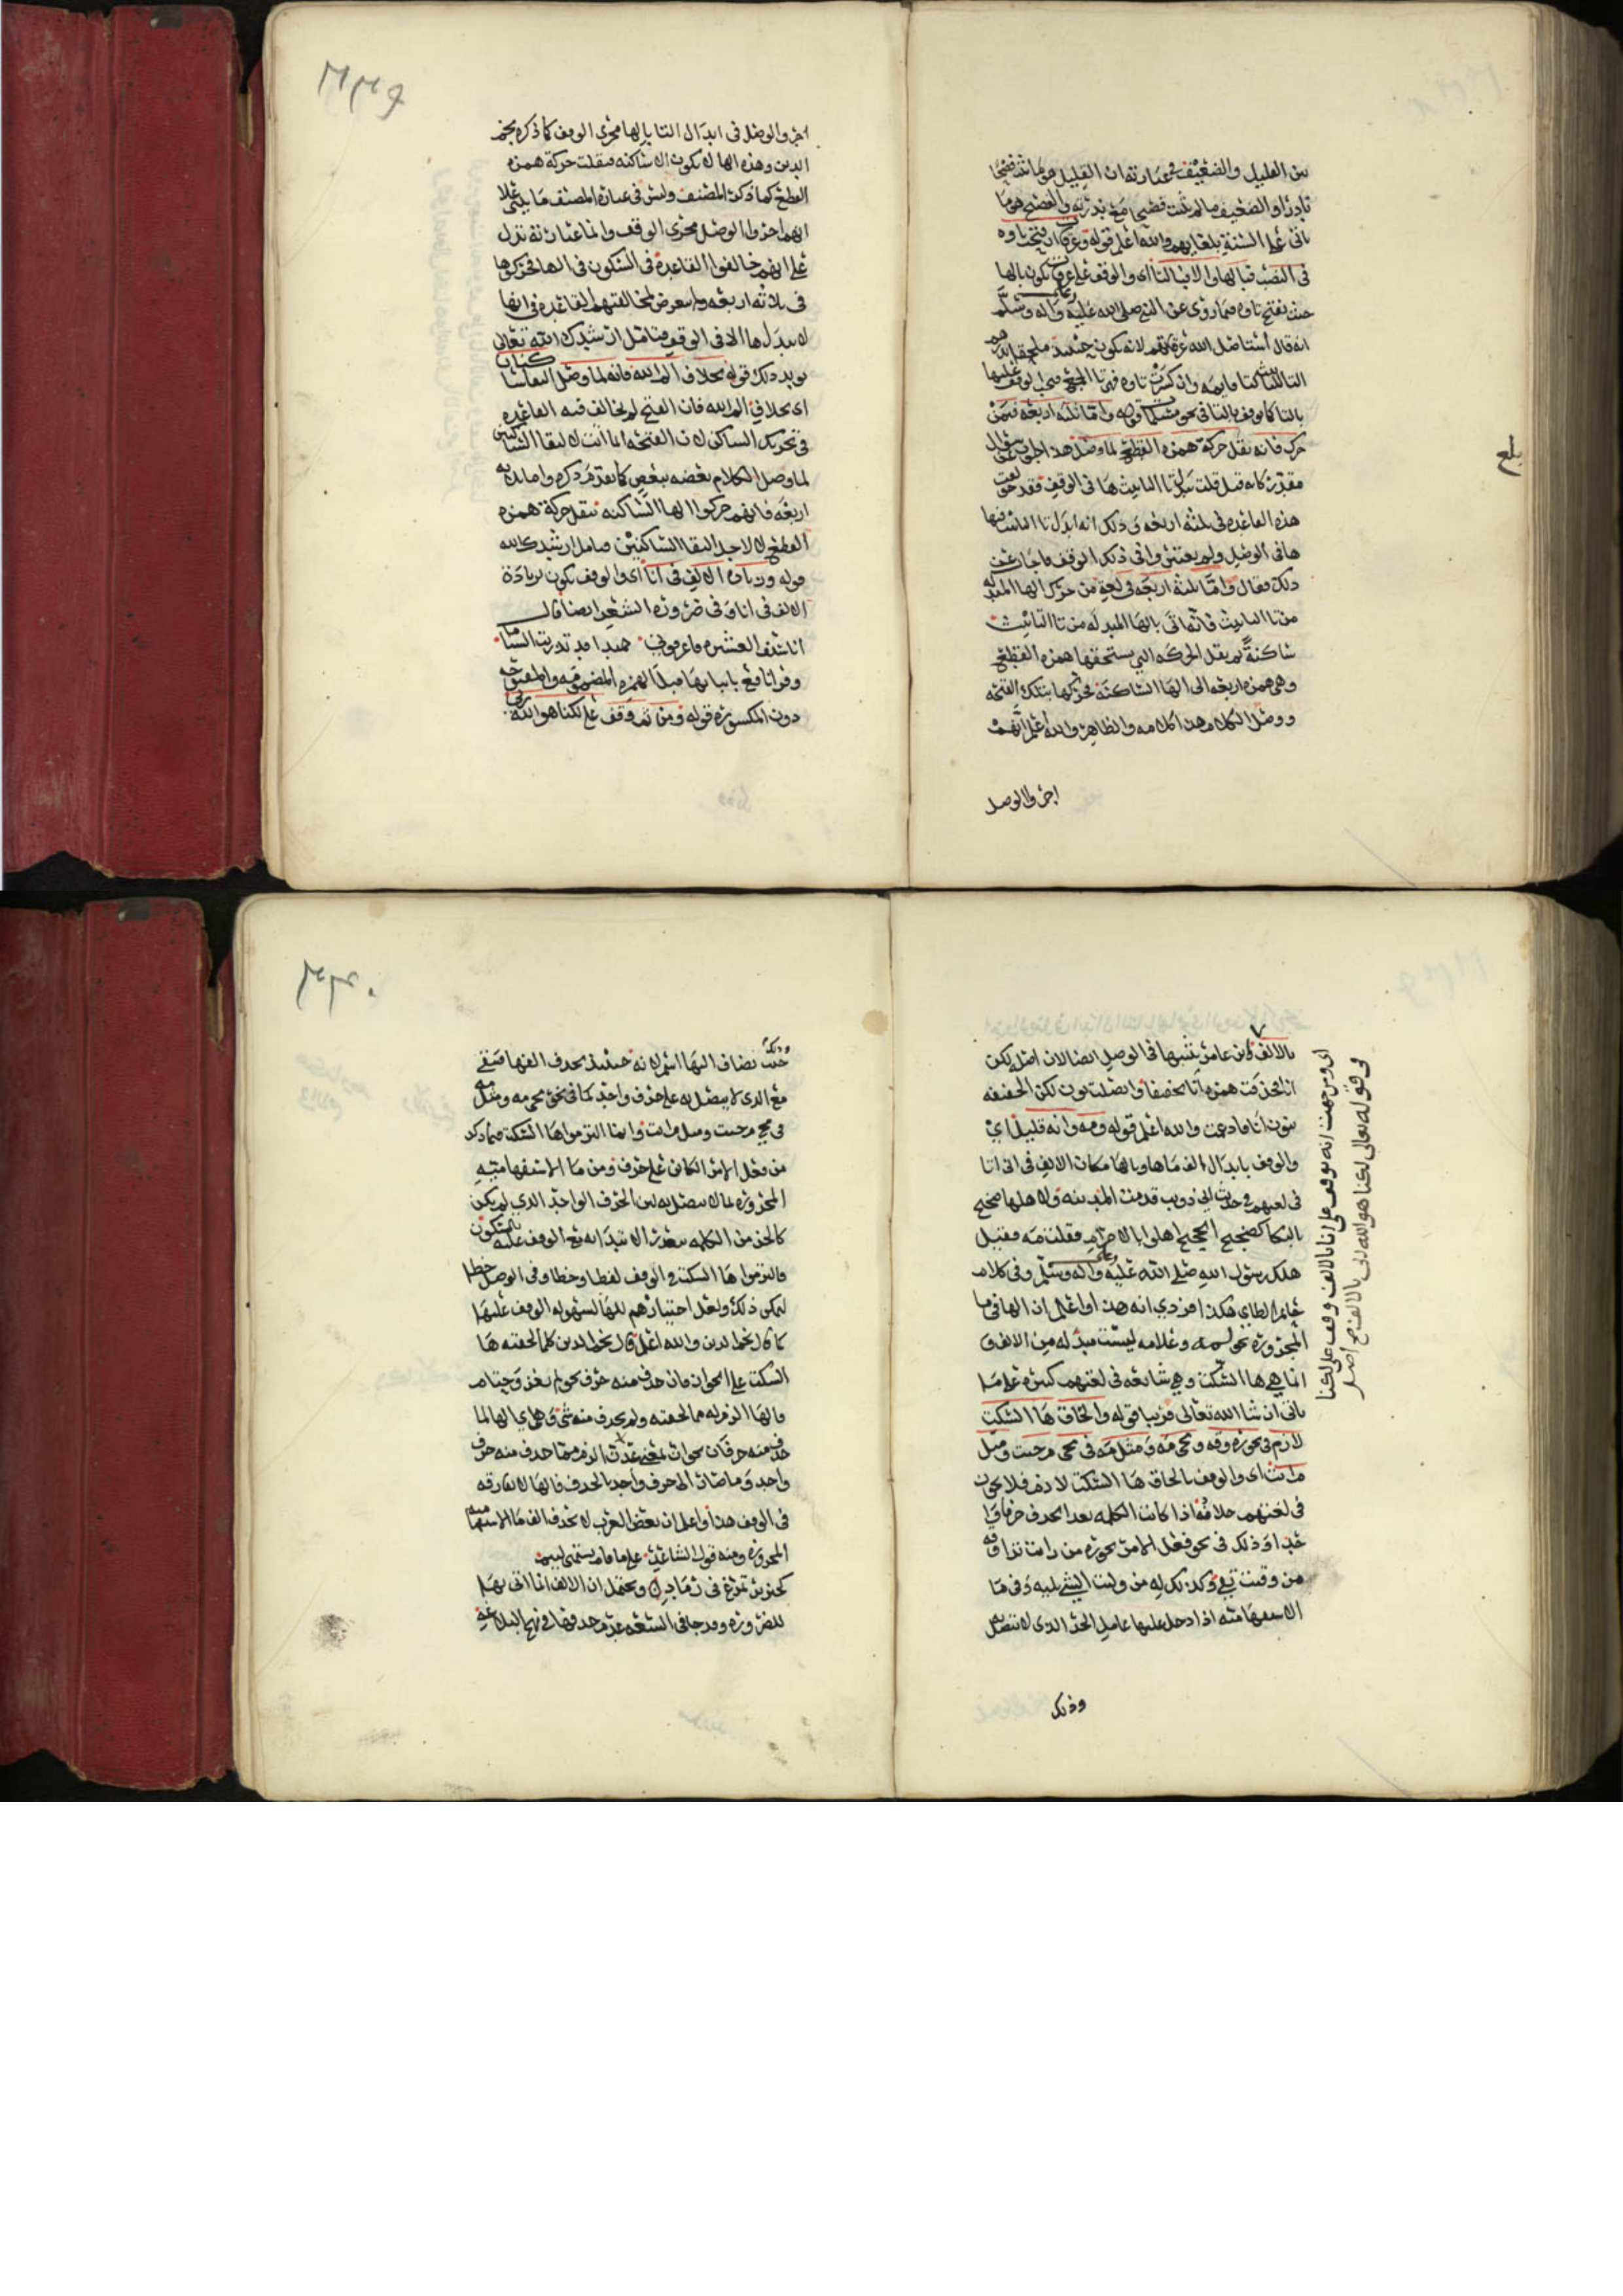 بين القليل والضعيف في عبارته ان القليل هو ما ثبت فصيحًا
نادرًا والضعيف ما لم يثبت فصيحا مع ندرته والفصيح هو ما
ياتي على السنة بلغايهم والله اعلم قوله وعرقات ان فتحت تاوه
في النصب فبالها والا فبالتا اى والوقف على عرقات يكون بالها
حيث تفتح تاوه فيما روى عن النبي صلى الله عليه وعلى اله وسلم
انه قال استاصل الله عرقاتهم لانه يكون حينئذ ملحقا
وان كسرت تاوه فهي تا الجمع فيجب الوقف عليها
بالتا كما يوقف بالتا في نحو مسلمات قوله واما ثلثه اربعه فيمن
حرك فانه نقل حركة همزه القطع لما وصل هذا جواب سؤال
مقدر كانه قيل قلت تبدل تا التانيث ها في الوقف فقد
هذه القاعده في ثلثه اربعه وذلك انه ابدل تا التانيث فيها
هافى الوصل ولم يعتنى واتى ذلك الوقف فاجاب عن
ذلك فقال واما ثلثه اربعه في لغة من حرك الها المبدله
من تا التانيث فانه اتى بالها المبدله من تا التانيث
ساكنةً ثم نقل الحركه التي يستحقها همزه القطع
وهي همزه اربعه الى الها الساكنه فحركها بتلك الفتحه
ووصل الكلام هذا كلامه والظاهر والله اعلم انهم
اجروا الوصل
بلغ
اجروا الوصل في ابدال التا بالها مجرى الوقف كما ذكره نجم
الدين وهذه الها لا تكون الا ساكنه فنقلت حركة همزه
القطع كما ذكره المصنف وليس في عبارة المصنف ما
انهم اجروا الوصل مجرى الوقف وانما عبارته تدل
على انهم خالفوا القاعده في السكون في الها فحركوها
في ثلاثه اربعه ولم يتعرض لمخالفتهم القاعده في انها
لا تبدل ها الا في الوقف فتامل ارشدك الله تعالى
يويد ذلك قوله بخلاف الم الله فانه لما وصل التقا ساكنان
اى بخلاف الم الله فان الفتح لم يخالف فيه القاعده
في تحريك الساكن لان الفتحه انما اتت لالتقا الساكنين
لما وصل الكلام بعضه ببعض كما تقدم ذكره واما ثلثه
اربعه فانهم حركوا الها الساكنه بنقل حركة همزه
القطع لا لاجل التقا الساكنين فتامل ارشدك الله
قوله وزياده الالف في انا اى والوقف يكون بزيادة
الالف في انا وفي ضروره الشعر ايضا قال
انا سيف العشيره فاعرفوني حميدا قد تذريت السناما
وقرا نافع باثباتها قبل الهمزه المضمومه والمفتوحه
دون المكسوره قوله ومن ثم وقف على لكنا هو الله ربي
بالالف وابن عامر يثبتها في الوصل ايضا لان اصله لكن
انا فحذفت همزه انا تخفيفا واتصلت نون لكن الخفيفه
بنون انا فادغمت والله اعلم قوله ومه وانه قليل اى
والوقف بابدال الف ما ها وبالها مكان الالف في انى انا
في لغتهم وحديث ابي ذويب قدمت المدينه ولاهلها ضجيج
بالبكا كضجيج الحجيج اهلوا بالاحرام فقلت مه فقيل
هلك رسول الله صلى الله عليه وعلى اله وسلم وفي كلام
حاتم الطاي هكذا فزدي انه هذا واعلم ان الها في ما
المجروره نحو لمه وعلامه ليست مبدله من الالف و
انما هي ها السكت وهي شائعه في لغتهم كثيره على ما
ياتي ان شا الله تعالى قريبا قوله والحاق ها السكت
لازم في نحو ره وقه ومجى مه ومثل مه في مجى م جيت ومثل
م انت اى والوقف بالحاق ها السكت لازم فلا يجوز
في لغتهم خلافه اذا كانت الكلمه بعد الحذف حرفا وا
حدا وذلك في نحو فعل الامر نحو ره من رايت ترا وقه
من وقيت تقى وكذلك له من وليت الشي تليه وفي ما
الاستفهاميه اذا دخل عليها عامل الجر الذي لا يتصل
وذلك
اى ومن جهت انه يوقف على انا بالالف وقف على لكنا
في قوله تعالى لكنا هو الله ربي بالالف صح اصل
وذلك
حيث تضاف اليها اسم لانه حينئذ يحذف الفها فتبقى
مع الذي لا يتصل به على حرف واحد كما في نحو مجى مه ومثل مه
في مجى م جيت ومثل م انت وانما التزموا ها السكت فيما ذكر
من فعل الامر الكائن على حرف ومن ما الاستفهاميه
المجروره بما لا يتصل به لان الحرف الواحد الذي لم يكن
كالجز من الكلمه يتعذر الابتدا به مع الوقف عليه بالسكون
فالتزموا ها السكت في الوقف لفظا وخطا وفي الوصل خطا
ليمكن ذلك ولعل اختيارهم للها لسهوله الوقف عليها
كما قال نجم الدين والله اعلم قال نجم الدين كلما لحقته ها
السكت على الجواز فان حذف منه حرف نحو لم يغز وحتام
فالها الزم له مما لحقته ولم يحذف منه شى وهي اي الها لما
حذف منه حرفان نحو ان تعى الزم مما حذف منه حرف
واحد وما صار الى حرف واحد بالحذف فالها لا تفارقه
في الوقف هذا واعلم ان بعض العرب لا تحذف الف ما الاستفهاميه
المجروره ومنه قول الشاعر على ما قام يشتمني لييم
كخنزير تمرغ في رماد ويحتمل ان الالف انما اتى بها
للضروره وقد جا في السعه عدم حذفها في نهج البلاغه